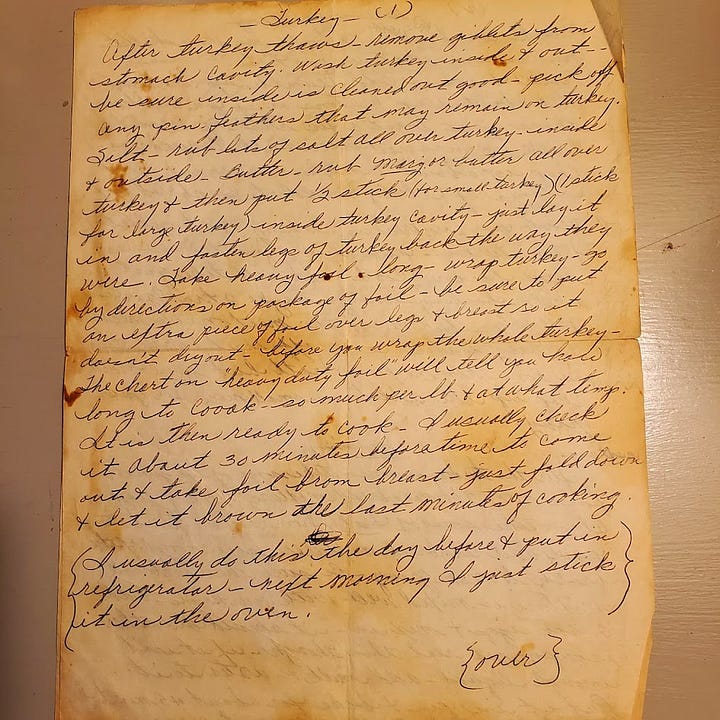 - Turkey - (1)
After turkey thaws - remove giblets from
stomach cavity. Wash turkey inside & out -
be sure inside is cleaned out good - pick off
any pin feathers that may remain on turkey.
Salt - rub lots of salt all over turkey - inside
& outside - Butter - rub marg or butter all over
turkey & then put 1/2 stick (for small turkey) (1 stick
for large turkey) inside turkey cavity - just lay it
in and fasten legs of turkey back the way they
were. Take heavy foil - long - wrap turkey - go
by directions on package of foil - be sure to put
an extra piece of foil over legs & breast so it
doesn't dry out - before you wrap the whole turkey -
The chart on "heavy duty foil" will tell you how
long to coook - so much per lb. & at what temp.
It is then ready to cook - I usually check
it about 30 minutes before time to come
out & take foil from breast - just fold down
& let it brown the last minutes of cooking.
{I usually do this the day before & put in
refrigirator - next morning I just stick
it in the oven.}
{over}